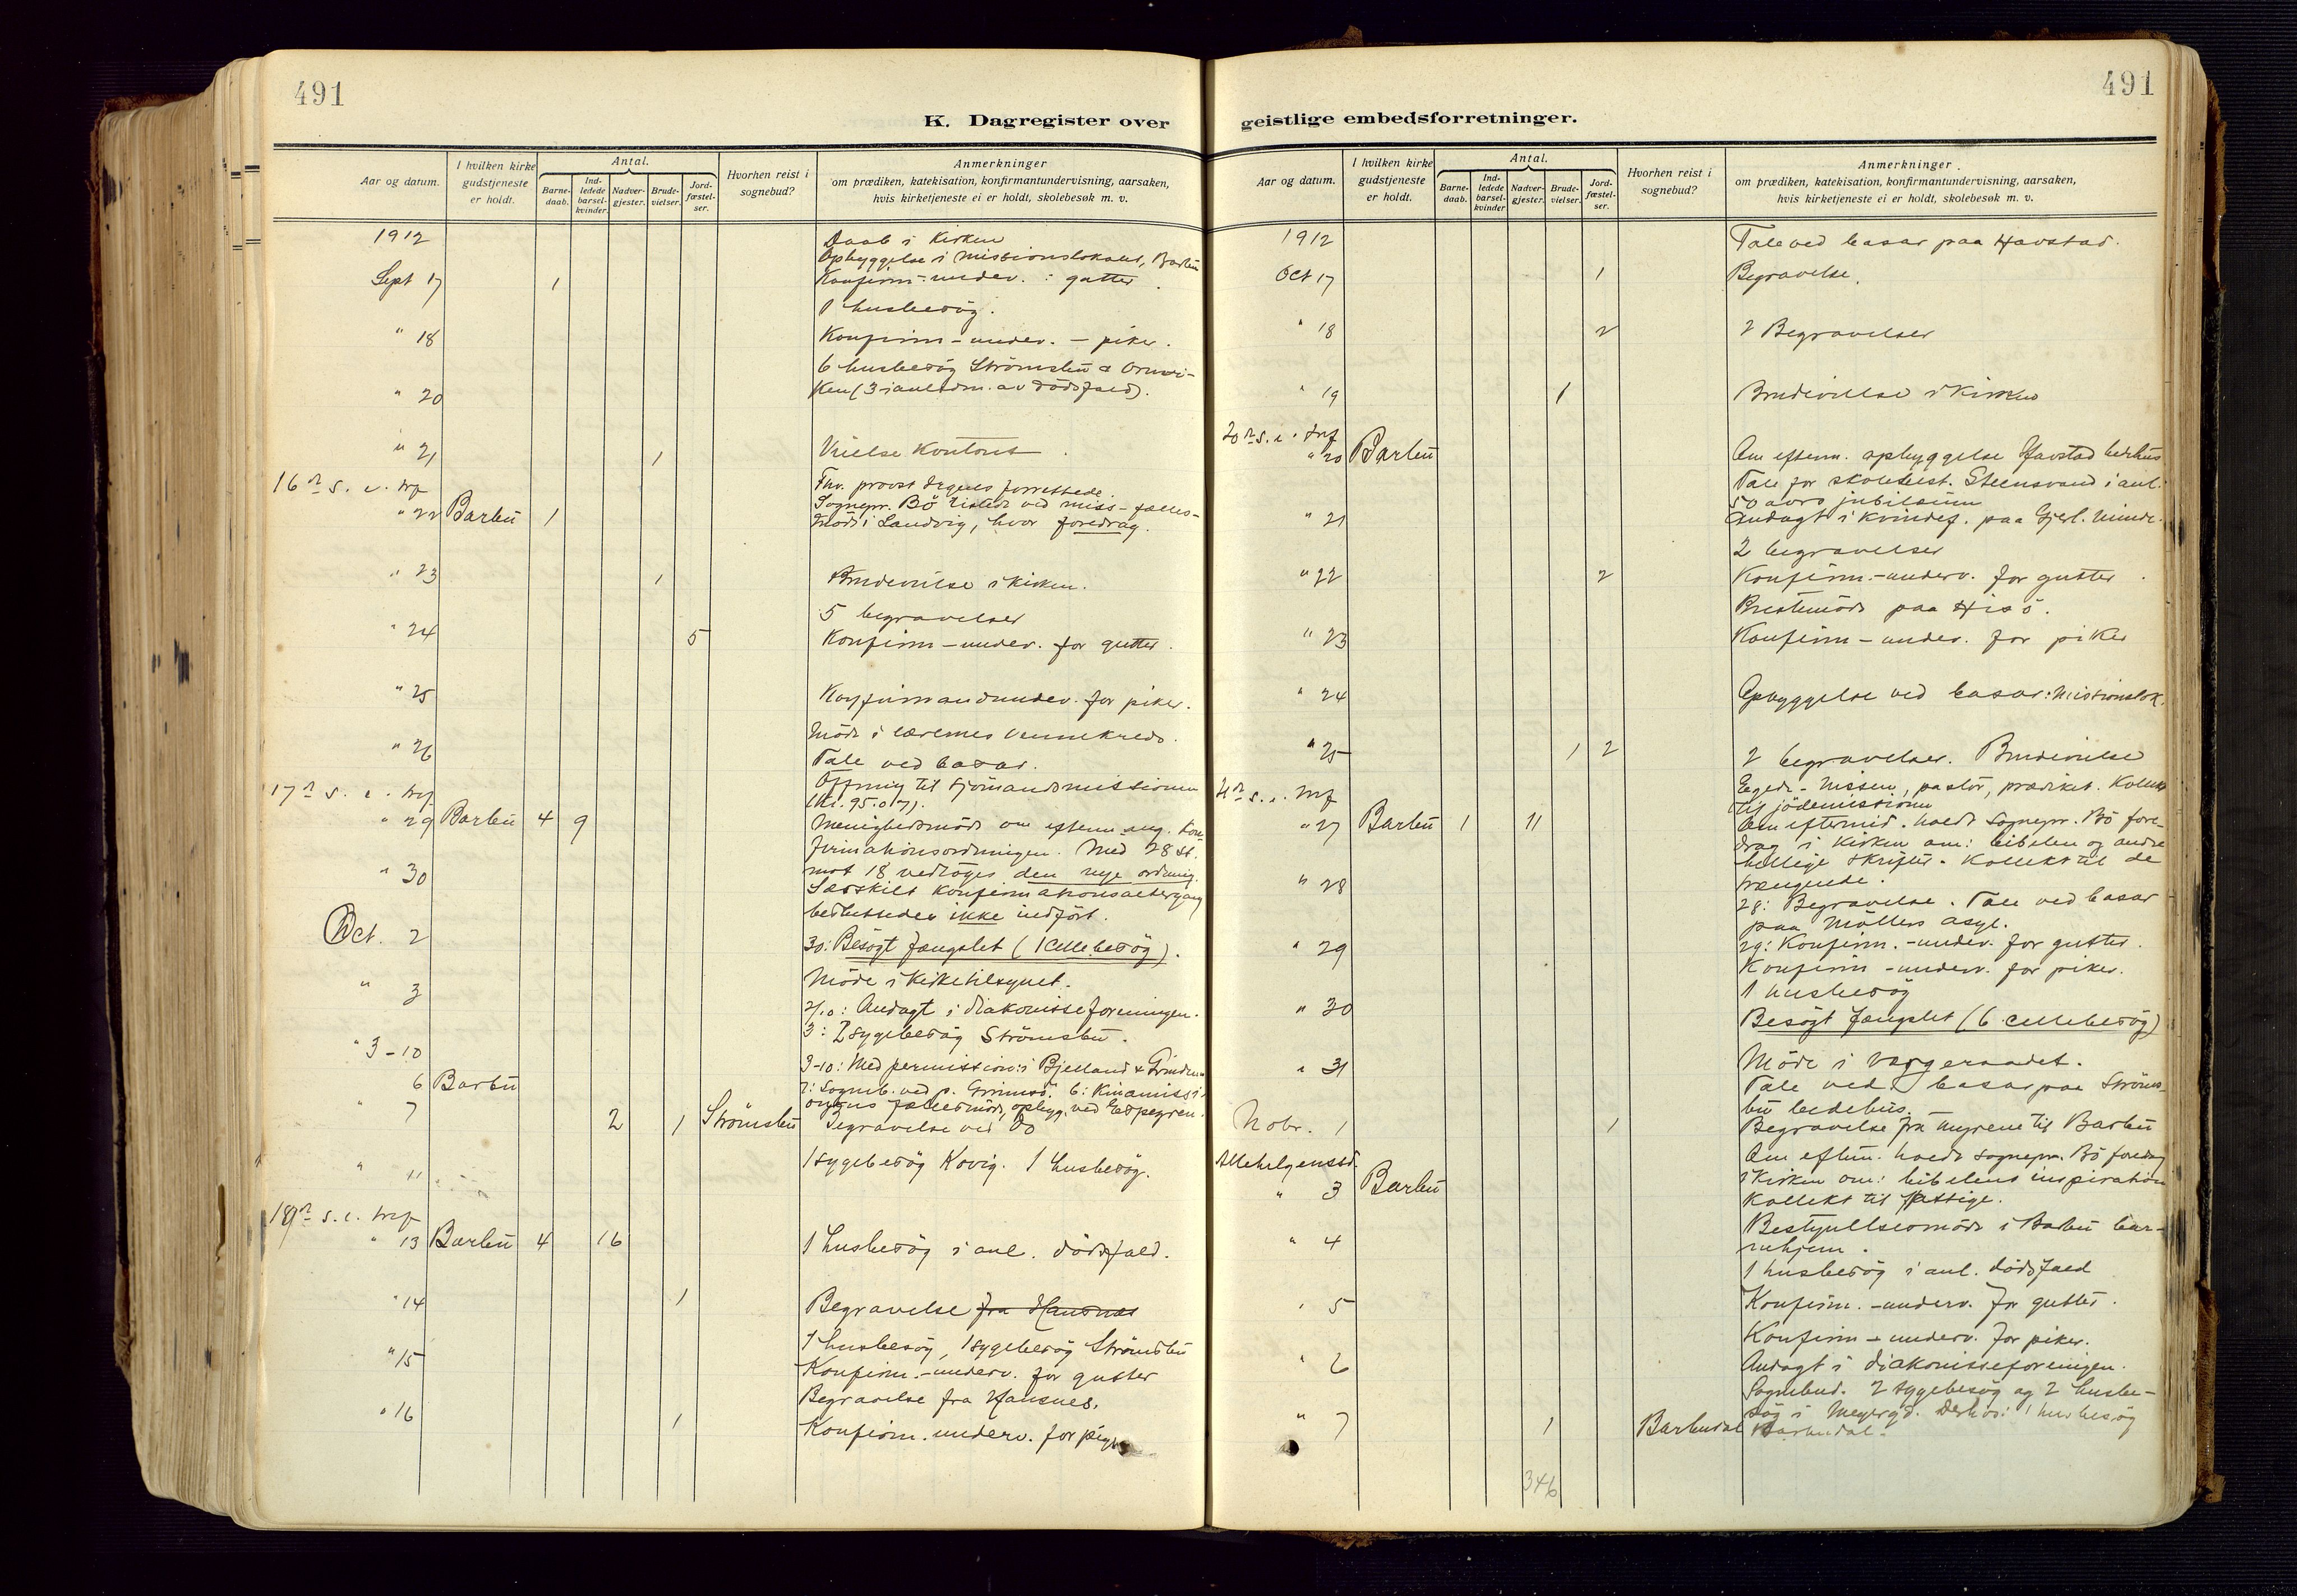 491
K. Dagregister over
Aar og datum.
I hvilken kirke gudstjeneste er holdt.
Antal.
Barne-daab.
Ind-ledede barsel-kvinder.
Nadver-gjester.
Brude-vielser.
Jord-fæstel-ser.
Hvorhen reist i sognebud?
Anmerkninger
om prædiken, katekisation, konfirmantundervisning, aarsaken,
hvis kirketjeneste ei er holdt, skolebesøk m. v.
1912
Daab i Kirken
Opbyggelse i Missionslokalet, Barbu
Sept 17 1 Konfirm.-underv. : gutter
1 husbesög.
" 18 Konfirm-underv. - piker.
6 husbesög Strömsbu &
" 20 (3 i anledn. av dödsfald).
" 21 1 Vielse Kontoret
16n s. e. trf
Fhv. provst forrettede.
" 22 Barbu 1 Sognepr. Bö tilstede ved miss-fælles-
möde i Landvig, hvor foredrag.
" 23 1 Brudevielse i Kirken.
5 begravelser
" 24 5 Konfirm-underv. for gutter.
" 25 Konfirmandunderv. for piker.
Möde i lærernes vennekreds.
" 26 Tale ved basar.
17n s. e. trf
Offring til Sjömandsmissionen
(Kr. 95.07).
" 29 Barbu 4 9 Menighedsmöde om efterm. ang. Kon-
firmationsordningen. Med 28 st.
mot 18 vedtoges den nye ordning.
" 30 Særskilt Konfirmationsaltergang
besluttedes ikke indfört.
Oct. 2 30: Besögt fængslet (1 cellebesög).
Möde i Kirketilsynet.
" 3 2/10: Andagt i diakonisseforeningen.
3: 2 sygebesög Strömsbu.
" 3-10 3-10: Med permission i Bjelland &
6 Barbu 7: Sogneb. ved p. Grimsö. 6: Kinamissi-
onens fællesmöde, opbygg. ved Espegren.
" 7 2 1 Strömsbu Begravelse ved Do
" 11 1 sygebesög Kovig. 1 husbesög.
19n s. e. trf
" 13 Barbu 4 16 1 husbesög i anl. dödsfald.
" 14 1 Begravelse fra Hansnes
1 husbesög, 1 sygebesög Strömsbu
" 15 Konfirm.-underv. for gutter
Begravelse fra Hansnes.
" 16 1 Konfirm. underv. for piger
491
geistlige embedsforretninger.
Aar og datum.
I hvilken kirke gudstjeneste er holdt.
Antal.
Barne-daab.
Ind-ledede barsel-kvinder
Nadver-gjester.
Brude-vielser.
Jord-fæstel-ser.
Hvorhen reist i sognebud?
Anmerkninger
om prædiken, katekisation, konfirmantundervisning, aarsaken,
hvis kirketjeneste ei er holdt, skolebesøk m. v.
1912 Tale ved basar paa Havstad.
Oct 17 1 Begravelse.
" 18 2 2 Begravelser
" 19 1 Brudevielse i Kirken
20n s. e. trf
" 20 Barbu Om efterm. opbyggelse Havstad bedehus
Tale for skolebest. Steensvand i anl.
50 aars jubilæum
" 21 Andagt i Kvindef. paa Gjerl. Minde.
2 begravelser
" 22 2 Konfirm.-underv. for gutter.
Prestemöde paa Hisö.
" 23 Konfirm-underv. for piker
" 24 Opbyggelse ved basar: Missionslok.
" 25 1 2 2 begravelser. Brudevielse
21n s. e. trf
Egede-Nissen, pastor, prædiket. Kollekt
til jödemissionen
" 27 Barbu 1 11 Om eftermid. holdt sognepr. Bö fore-
drag i Kirken om: bibelen og andre
hellige skrifter. Kollekt til de
trængende.
" 28 28: Begravelse. Tale ved basar
paa Möllers asyl.
" 29 29: Konfirm.-underv. for gutter.
Konfirm-underv. for piker.
1 husbesög
" 30 Besögt fængslet (6 cellebesög)
Möde i vergeraadet.
" 31 Tale ved basar paa Ströms-
bu bedehus.
Nobr. 1 1 Begravelse fra Myrene til Barbu
Allehelgenssd.
Om efterm. holdt sognepr. Bö foredrag
" 3 Barbu i Kirken om: bibelens inspiration
Kollekt til fattige.
" 4 Bestyrelsesmöde i Barbu bar-
nehjem.
1 husbesög i anl. dödsfald
" 5 Konfirm.-underv. for gutter.
Konfirm-underv. for piker.
" 6 Andagt i diakonisseforeningen.
Sognebud. 2 sygebesög og 2 husbe-
" 7 1 Barbudal sög i Meyergd. Derhos: 1 husbesög
Barbudal.
346